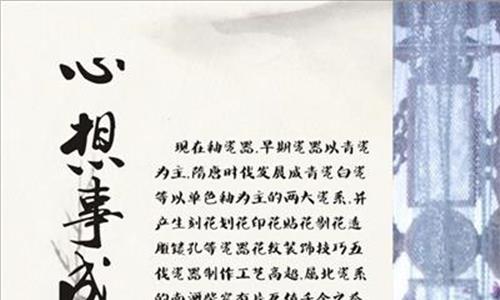 心想事成
现在釉瓷器,早期瓷器以青瓷
为主,隋唐时代发展成青瓷白瓷
等以单色釉为主的两大瓷系,并
产生刻花划花印花贴花剔花透
雕镂孔等瓷器花纹装饰技巧五
代瓷器制作工艺高超,属北瓷系